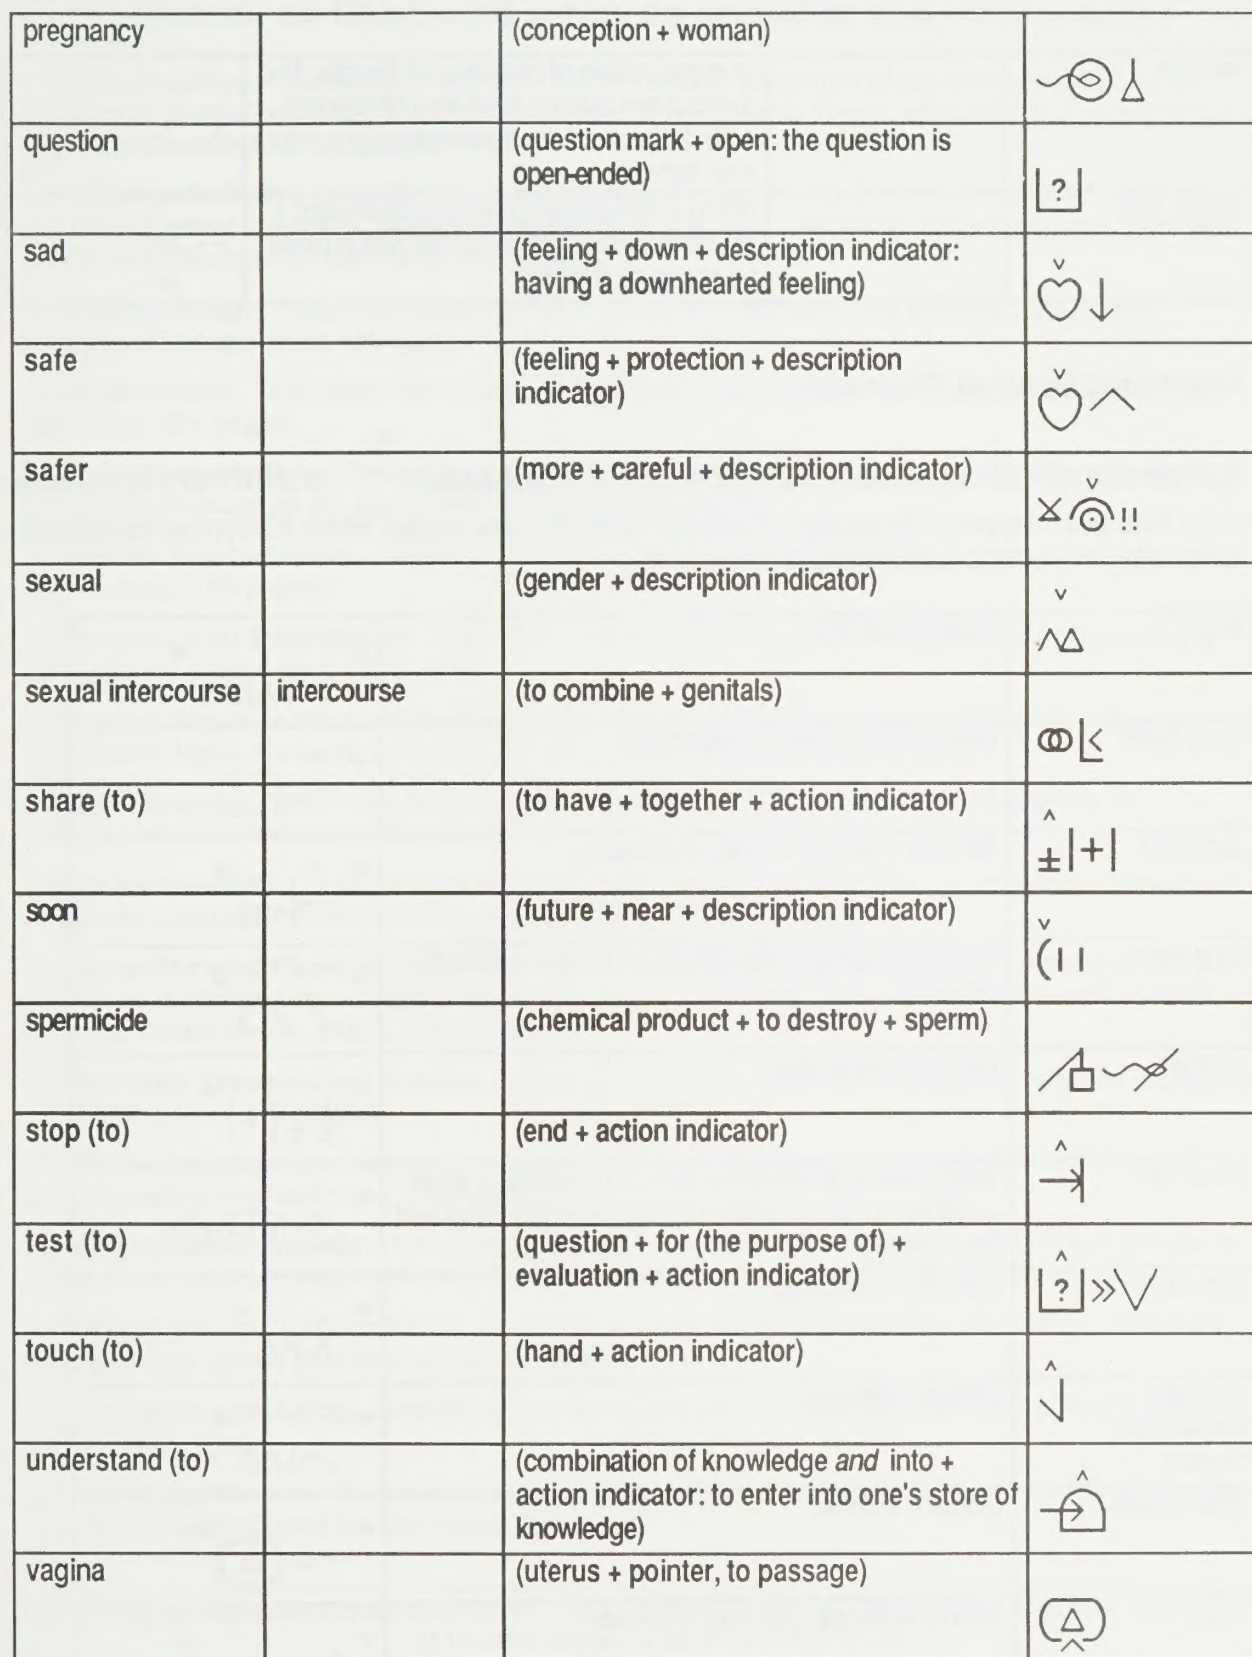 pregnancy (conception + woman)
question (question mark + open: the question is
open-ended)
?
sad (feeling + down + description indicator:
having a downhearted feeling)
safe (feeling + protection + description
indicator)
safer (more + careful + description indicator)
!!
sexual (gender + description indicator)
sexual intercourse intercourse (to combine + genitals)
share (to) (to have + together + action indicator)
soon (future + near + description indicator)
spermicide (chemical product + to destroy + sperm)
stop (to) (end + action indicator)
test (to) (question + for (the purpose of) +
evaluation + action indicator)
?
touch (to) (hand + action indicator)
understand (to) (combination of knowledge and into +
action indicator: to enter into one's store of
knowledge)
vagina (uterus + pointer, to passage)